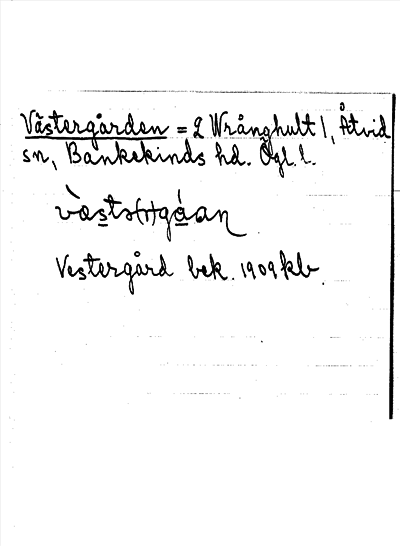 Västergården = 2 Wrånghult 1, Åtvid
sn, Bankekinds hd. Ögl. l.
væ̀stə(r)gáan
Vestergård bek. 1909 kb.